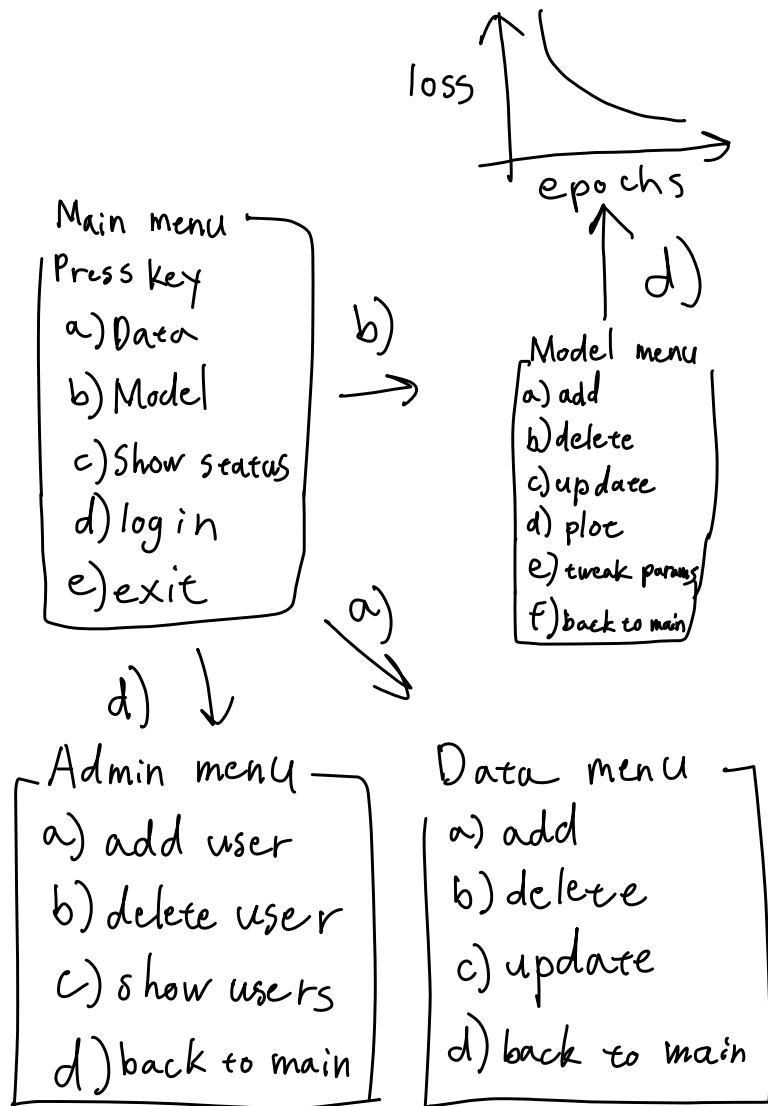 loss
epochs
d)
Main menu
Press key
a) Data
b) Model
c) Show status
d) log in
e) exit
b)
Model menu
a) add
b) delete
c) update
d) plot
e) tweak params
f) back to main
a)
d)
Admin menu
a) add user
b) delete user
c) show users
d) back to main
Data menu
a) add
b) delete
c) update
d) back to main